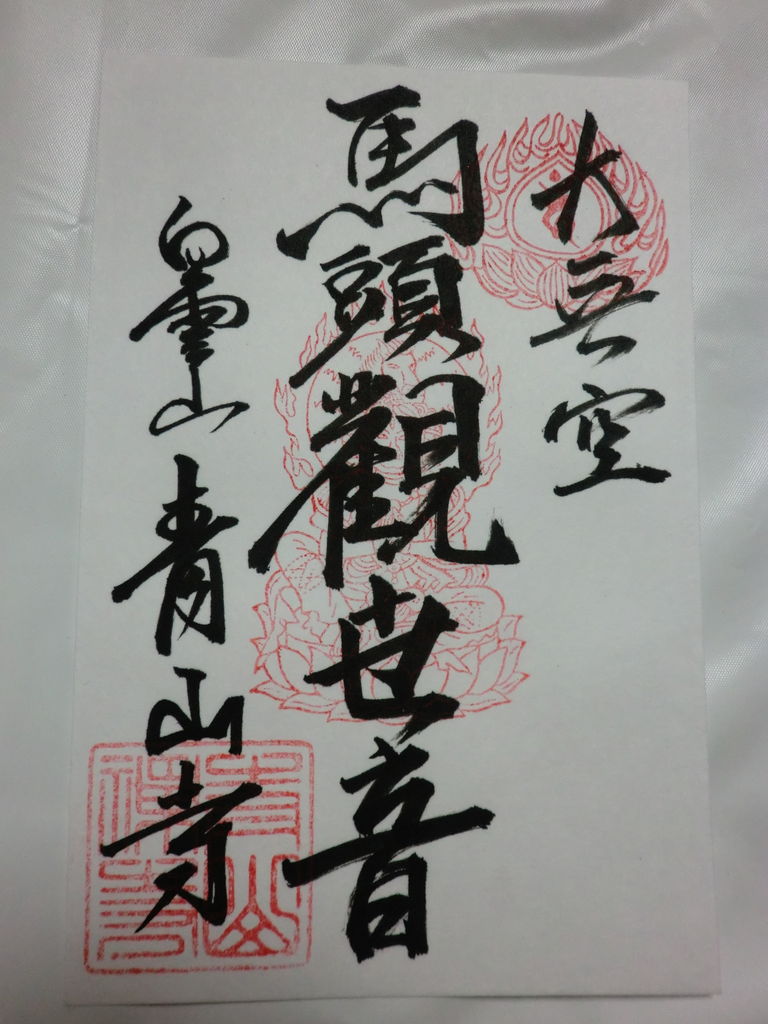 大空
馬頭觀世音
白雲山 青山寺